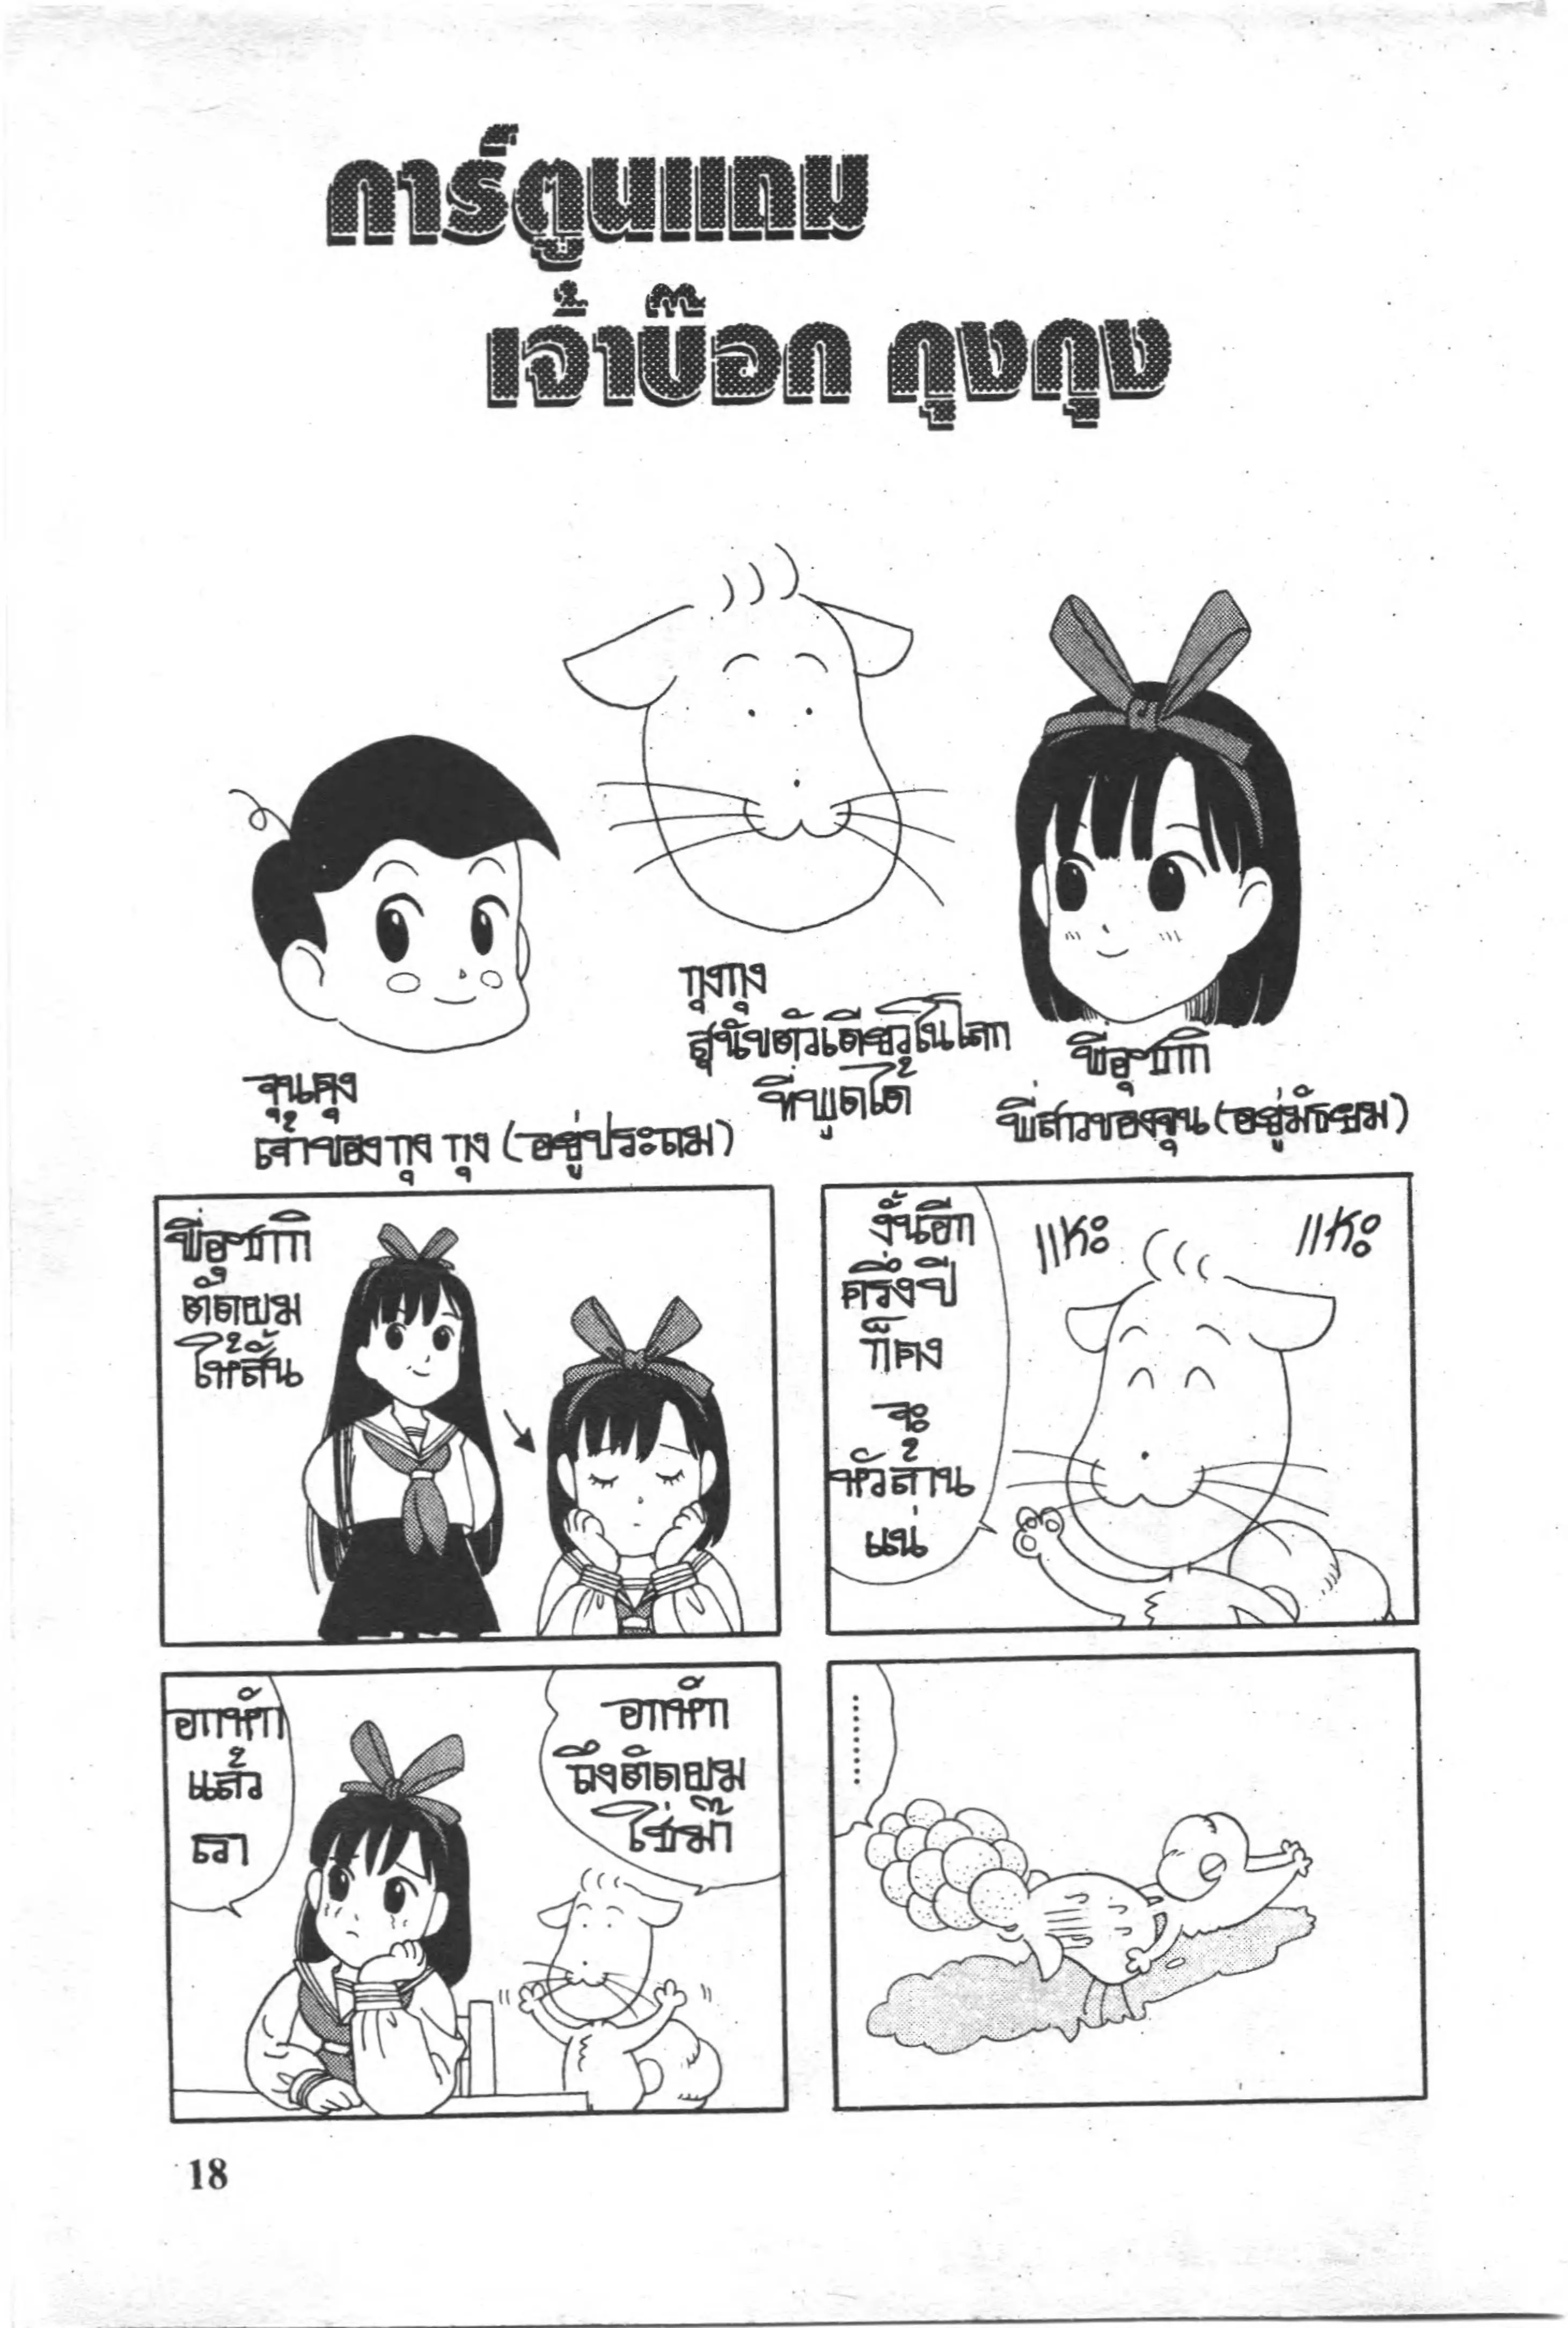 การ์ตูนแถม
เจ้าบ๊อก กุงกุง
จุนคุง
เจ้าของกุง กุง (อยู่ประถม)
กุงกุง
สุนัขตัวเดียวในโลก
ที่พูดได้
พี่อุซากิ
พี่สาวของจุน (อยู่มัธยม)
พี่อุซากิ
ตัดผม
ให้สั้น
อกหัก
ถึงตัดผม
ใช่ม๊า
อกหัก
แล้ว
รา
งั้นอีก
ครึ่งปี
ก็คง
จะ
หัวล้าน
แน่
แหะ
แหะ
........
18